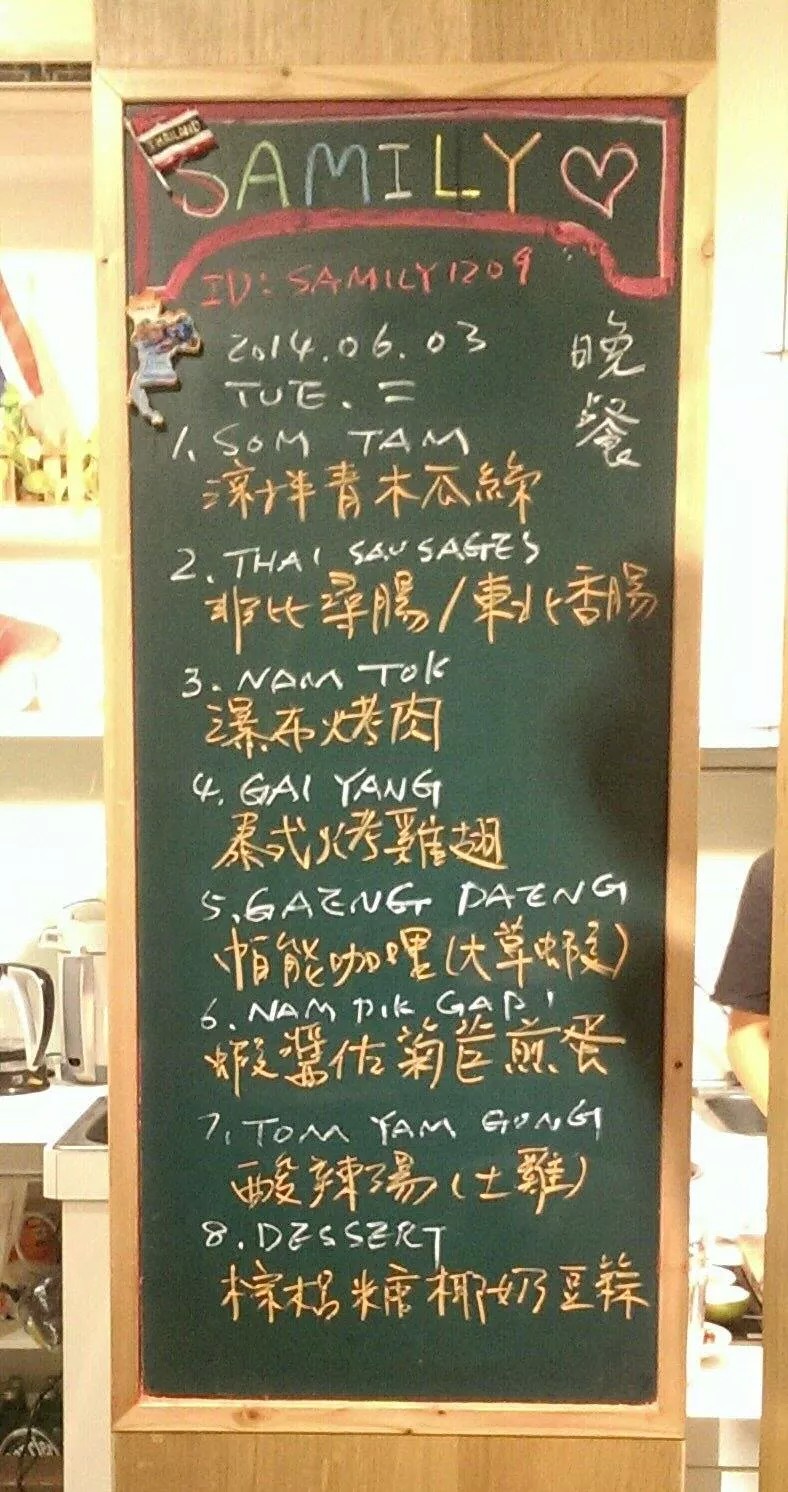 THAILAND
SAMILY
ID: SAMILY1209
2014.06.03
TUE. 二
晚餐
1. SOM TAM
涼拌青木瓜絲
2. THAI SAUSAGES
非比尋腸/東北香腸
3. NAM TOK
瀑布烤肉
4. GAI YANG
泰式烤雞翅
5. GAENG DAENG
帕能咖哩(大草蝦)
6. NAM PIK GAPI
蝦醬佐菊苣煎蛋
7. TOM YAM GUNG
酸辣湯(土雞)
8. DESSERT
棕梠糖椰奶豆蒜